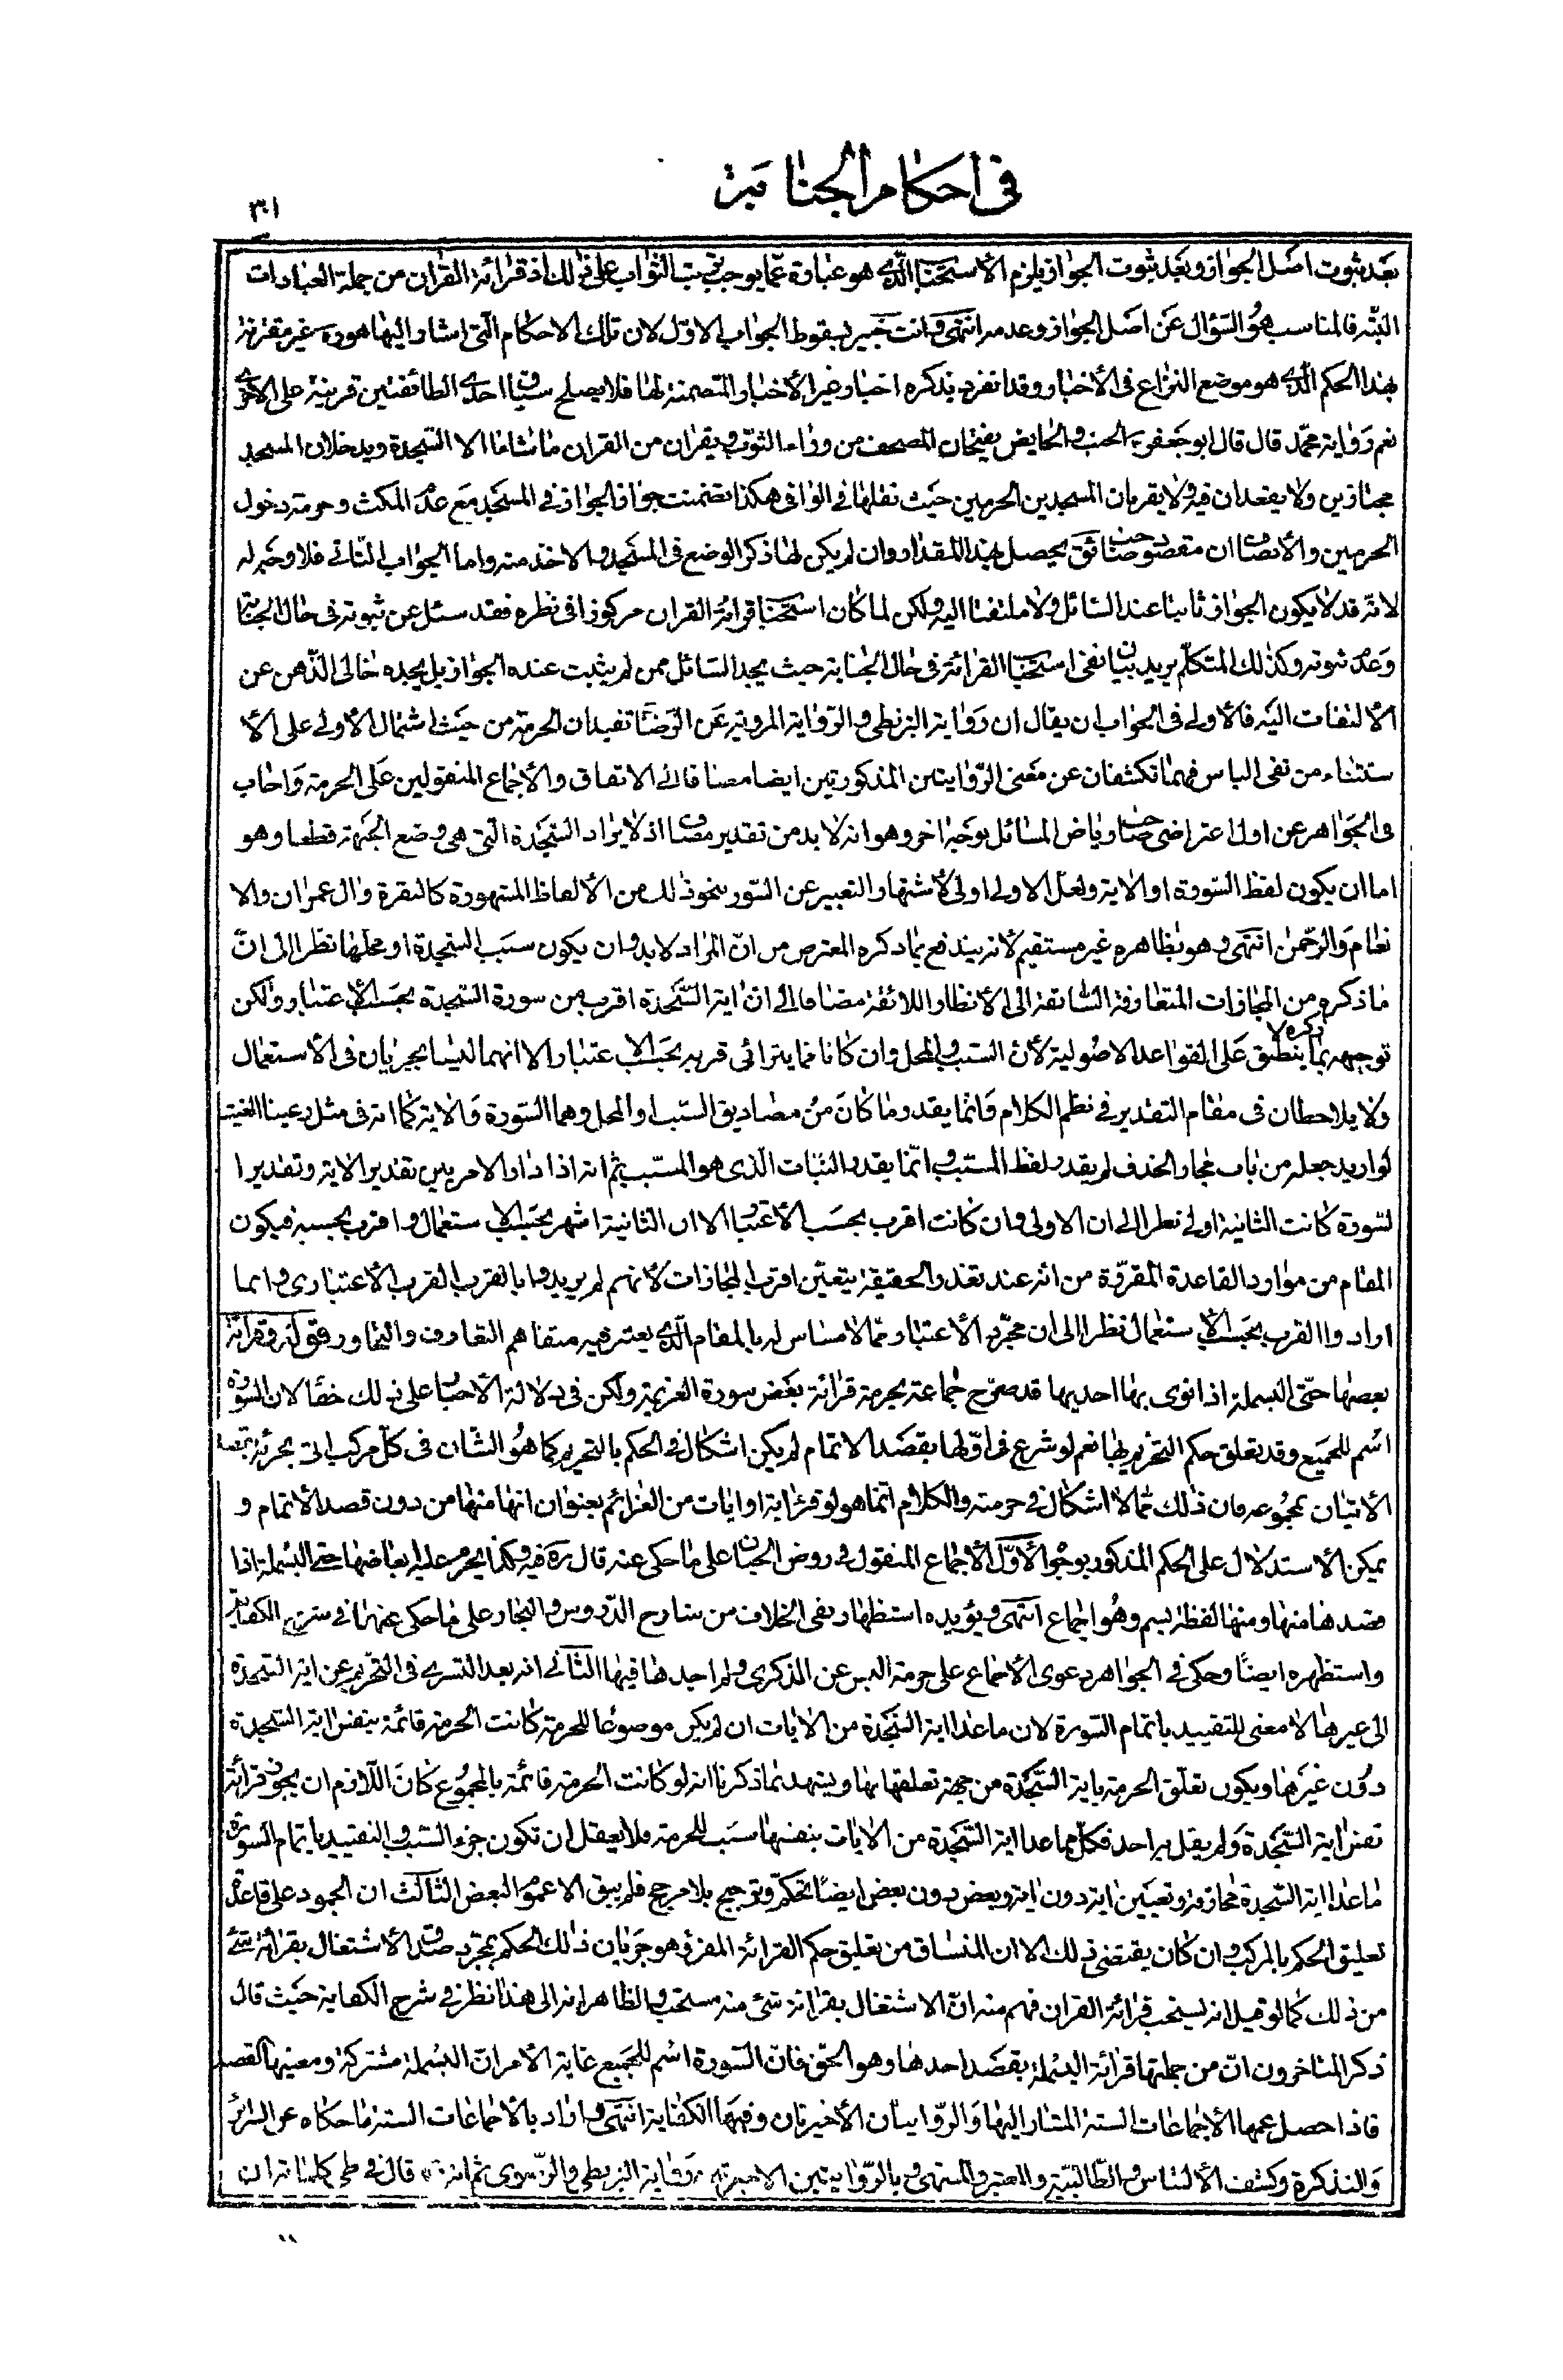 في احكام الجنابة
٣٠١
بعد ثبوت اصل الجواز وبعد ثبوت الجواز يلزم الاستحباب الّذى هو عبارة عمّا يوجب ترتب الثواب على ذلك اذ قرائة القران من جملة العبادات
البتّة فالمناسب هو السّؤال عن اصل الجواز وعدمه انتهى وانت خبير بسقوط الجواب الاوّل لان تلك الاحكام الّتى اشار اليها هوره غير مقترنة
بهذا الحكم الّذى هو موضع النزاع فى الأخبار وقد انفرد بذكره اخبار غير الأخبار المتضمنة لها فلا يصلح سياق احدى الطائفتين قرينة على الاخرى
نعم رواية محمّد قال قال ابو جعفر ع الجنب والحايض يفتحان المصحف من وراء الثوب ويقران من القران ما شاءا الا السّجدة ويدخلان المسجد
مجتازين ولا يقعدان فيه ولا يقربان المسجدين الحرمين حيث نقلها فى الوافى هكذا تضمنت جواز الجواز فى المسجد مع عدم المكث وحرمة دخول
الحرمين والأنصاف ان مقصود صاحب ئق يحصل بهذا المقدار وان لم يكن لها ذكر الوضع فى المسجد والاخذ منه واما الجواب الثانى فلا وجه له
لانّه قد لا يكون الجواز ثابتا عند السّائل ولا ملتفتا اليه ولكن لما كان استحباب قرائة القران مركوزا فى نظره فقد سئل عن ثبوته فى حال الجنابة
وعدم ثبوته وكذلك المتكلّم يريد بيان نفى استحباب القرائة فى حال الجنابة حيث يجد السّائل ممن لم يثبت عنده الجواز بل يجده خالى الذّهن عن
الألتفات اليه فالأولى فى الجواب ان يقال ان رواية البزنطى والرّواية المروية عن الرّضا ع تفيدان الحرمة من حيث اشتمال الأولى على الأ
ستثناء من نفى الباس فهما تكشفان عن معنى الرّوايتين المذكورتين ايضا مضافا الى الاتفاق والأجماع المنقولين على الحرمة واجاب
فى الجواهر عن اول اعتراضى صاحب رياض المسائل بوجه اخر وهو انه لا بد من تقدير مضاف اذ لا يراد السّجدة الّتى هى وضع الجبهة قطعا وهو
اما ان يكون لفظ السّورة او الاية ولعلّ الاولى اولى لأشتهار التعبير عن السّور بنحو ذلك من الألفاظ المشهورة كالبقرة وال عمران والا
نعام والرّحمن انتهى وهو بظاهره غير مستقيم لانه يندفع بما ذكره المعترض من انّ المراد لا بد وان يكون سبب السّجدة او محلّها نظرا الى انّ
ما ذكره من المجازات المتعارفة السّابقة الى الأنظار اللائقة مضافا الى ان اية السّجدة اقرب من سورة السّجدة بحسب الأعتبار ولكن
توجيهه بما ذكره لا ينطبق على القواعد الاصولية لأن السّبب والمحل وان كانا فما يترائى قربه بحسب الاعتبار الا انهما ليسا يجريان فى الأستعمال
ولا يلاحظان فى مقام التقدير فى نظم الكلام وانما يقدر ما كان من مصاديق السّبب او المحل وهما السّورة والاية كما انه فى مثل رعينا الغيث
لو اريد جعله من باب مجاز الحذف لم يقدر لفظ المسبّب وانّما يقدر النّبات الّذى هو المسبّب ثم انه اذا دار الامر بين تقدير الاية وتقدير ا
لسّورة كانت الثانية اولى نظرا الى ان الاولى وان كانت اقرب بحسب الأعتبار الا ان الثانية اشهر بحسب الاستعمال واقرب بحسبه فيكون
المقام من موارد القاعدة المقرّرة من انه عند تعذر الحقيقة يتعيّن اقرب المجازات لأنهم لم يريدوا بالقرب القرب الأعتبارى وانما
ارادوا القرب بحسب الاستعمال نظرا الى ان مجرّد الأعتبار ممّا لا مساس له بالمقام الّذى يعتبر فيه متفاهم التعارف والتحاور قوله وقرائة
بعضها حتّى البسملة اذا نوى بها احديها قد صرّح جماعة بحرمة قرائة بعض سورة العزيمة ولكن فى دلالة الأخبار على ذلك خفاء لان السّورة
اسم للجميع وقد تعلق حكم التحريم بها نعم لو شرع فى اوّلها بقصد الاتمام لم يكن اشكال فى الحكم بالتحريم كما هو الشّان فى كلّ مركب اتى بجزئه بقصد
الأتيان بمجموعه فان ذلك ممّا لا اشكال فى حرمته والكلام انّما هو لو قرء اية او ايات من العزائم بعنوان انها منها من دون قصد الأتمام و
يمكن الأستدلال على الحكم المذكور بوجوه الأوّل الأجماع المنقول فى روض الجنان على ما حكى عنه قال ره فيه وكذا يحرم عليه ابعاضها حتى البسملة اذا
قصدها منها ومنها لفظة بسم وهو اجماع انتهى ويؤيده استظهار نفى الخلاف من شارح الدّروس والبحار على ما حكى عنهما فى شرح الكفاية
واستظهره ايضًا وحكى فى الجواهر دعوى الأجماع على حرمة البعض عن الذكرى ولم اجدها فيها الثّانى انه بعد التسرى فى التّحريم عن اية السّجدة
الى غيرها لا معنى للتقييد باتمام السّورة لان ما عدا اية السّجدة من الايات ان لم يكن موضوعًا للحرمة كانت الحرمة قائمة بنفس اية السّجدة
دون غيرها ويكون تعلّق الحرمة باية السّجدة من جهة تعلقها بها ويشهد بما ذكرنا انه لو كانت الحرمة قائمة بالمجموع كان اللّازم ان يجوز قرائة
نفس اية السّجدة ولم يقل به احد فكلّ مما عدا اية السّجدة من الايات بنفسها سبب للحرمة فلا يعقل ان تكون جزء السّبب والتقييد باتمام السّورة
ما عدا اية السّجدة مجازفة وتعيين اية دون اية وبعض دون بعض ايضًا تحكّم وترجيح بلا مرجح فلم يبق الا عموم البعض الثّالث ان الجمود على قاعدة
تعليق الحكم بالمركب وان كان يقتضى ذلك الا ان المنساق من تعليق حكم القرائة المفرق هو جريان ذلك الحكم بمجرّد صدق الأشتغال بقرائة شئ
من ذلك كما لو قيل انه يستحب قرائة القران فهم منه انّ الاشتغال بقرائة شئ منه مستحب والظاهر انه الى هذا نظر فى شرح الكفاية حيث قال
ذكر المتاخرون انّ من جملتها قرائة البسملة بقصد احدها وهو الحقّ فانّ السّورة اسم للجميع غاية الأمر انّ البسملة مشتركة ومعينها القصد
فاذا حصل عمها الأجماعات الستة المشار اليها والرّوايتان الأخيرتان وفيهما الكفاية انتهى واراد بالأجماعات الستة ما حكاه عن السّرائر
والتذكرة وكشف الألتباس والطّالبيّة والمعتبر والمنتهى وبالرّوايتين الاخيرتين رواية البزنطى والرّضوى ثم انه قال فى طى كلماته ان